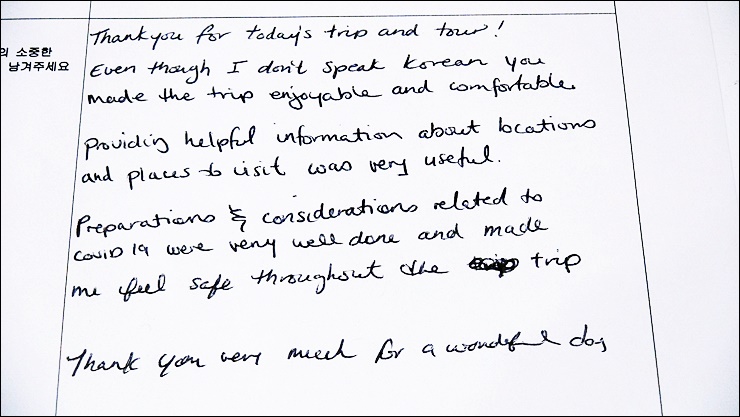 의 소중한
남겨주세요
Thankyou for today's trip and tour!
Even though I don't speak Korean you
made the trip enjoyable and comfortable.
Providing helpful information about locations
and places to visit was very useful.
Preparations & considerations related to
covid 19 were very well done and made
me feel safe throughout the trip
Thank you very much for a wonderful day